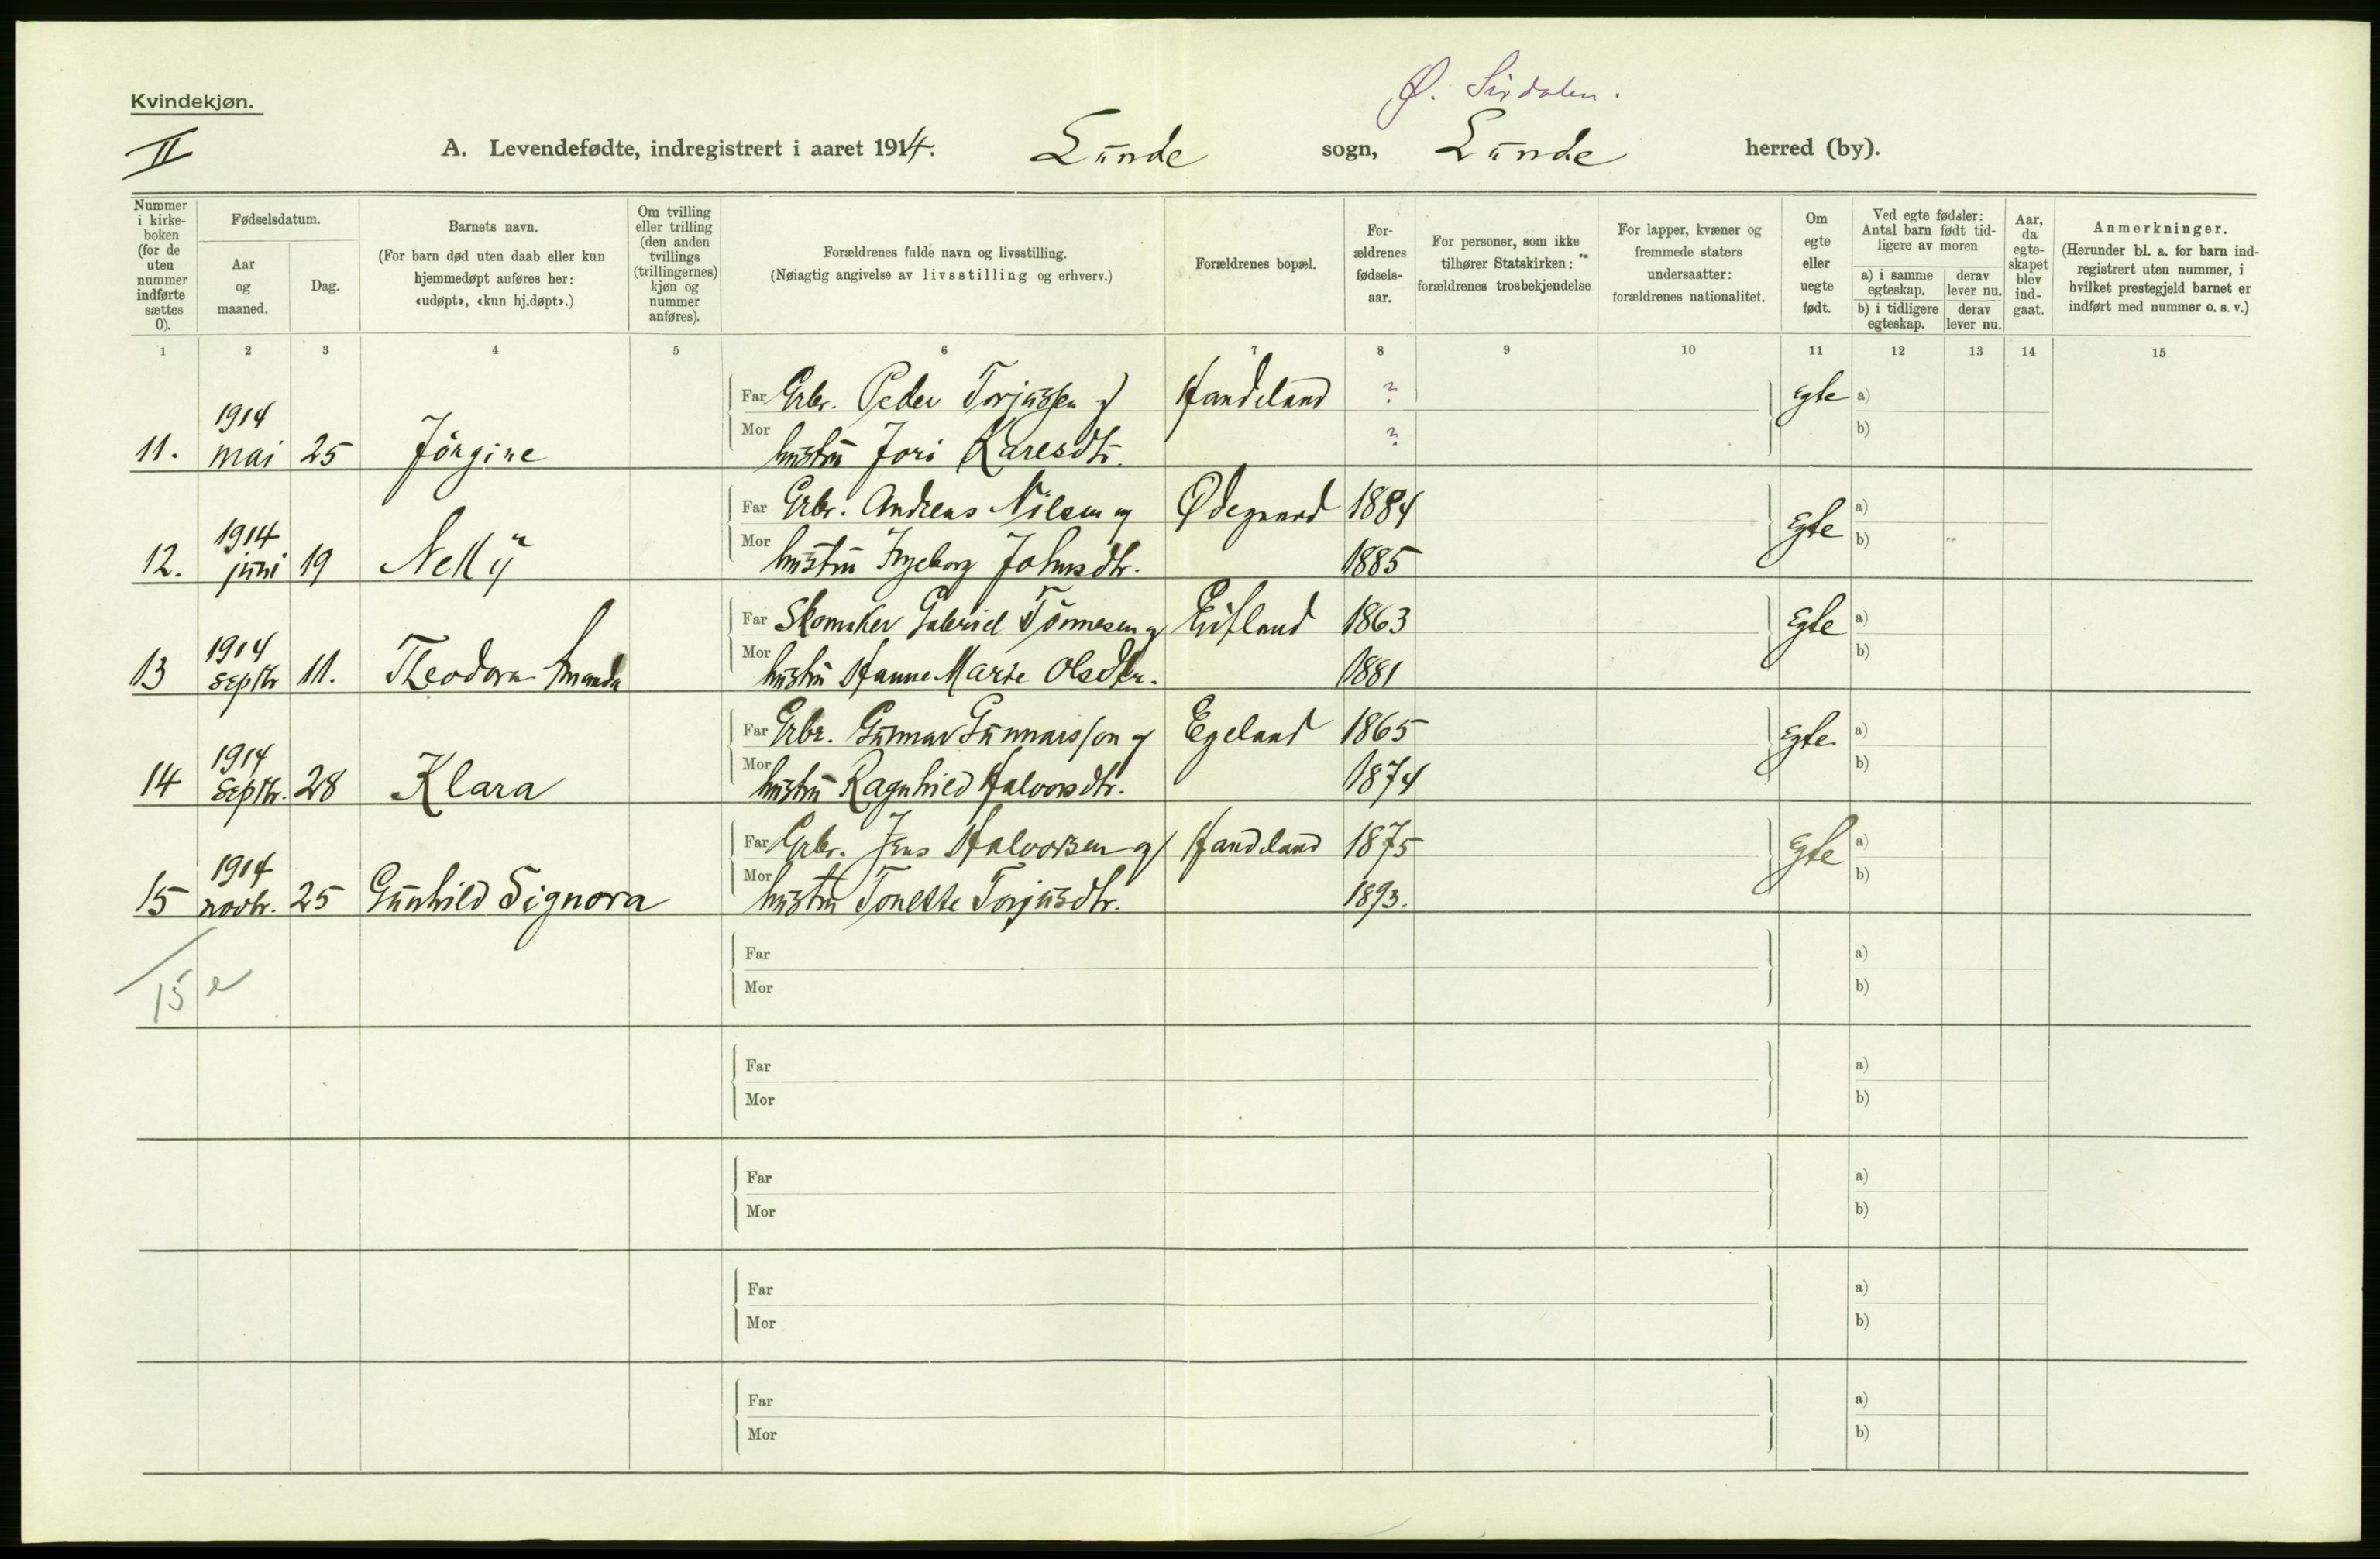 Ø. Sirdalen.
Kvindekjøn.
II
A. Levendefødte, indregistrert i aaret 1914. Lunde sogn, Lunde herred (by).
Nummer i kirke-boken (for de uten nummer indførte sættes 0).
Fødselsdatum.
Aar og maaned.
Dag.
Barnets navn.
(For barn død uten daab eller kun hjemmedøpt anføres her: «udøpt», «kun hj.døpt».)
Om tvilling eller trilling (den anden tvillings (trillingernes) kjøn og nummer anføres).
Forældrenes fulde navn og livsstilling.
(Nøiagtig angivelse av livsstilling og erhverv.)
Forældrenes bopæl.
For-ældrenes fødsels-aar.
For personer, som ikke tilhører Statskirken: forældrenes trosbekjendelse
For lapper, kvæner og fremmede staters undersaatter: forældrenes nationalitet.
Om egte eller uegte født.
Ved egte fødsler: Antal barn født tid-ligere av moren
a) i samme egteskap. derav lever nu.
b) i tidligere egteskap. derav lever nu.
Aar, da egte-skapet blev ind-gaat.
Anmerkninger.
(Herunder bl. a. for barn ind-registrert uten nummer, i hvilket prestegjeld barnet er indført med nummer o. s. v.)
1 2 3 4 5 6 7 8 9 10 11 12 13 14 15
Far Grbr. Peder Torjussen og Handeland ? Egte a)
11. 1914 mai 25 Jörgine
Mor hustru Jori Karesdtr. ? b)
Far Grbr. Andreas Nilsen og Ødegaard 1884 Egte a)
12. 1914 juni 19 Nelly
Mor hustru Ingeborg Johnsdtr. 1885 b)
Far Skomaker Gabriel Tönnesen og 1863 Egte a)
13 1914 septbr 11. Theodora Amanda
Mor hustru Hanne Marie Olsdtr. 1881 b)
Far Grbr. Gunnar Gunnarsson og Egeland 1865 Egte. a)
14 1914 septbr. 28 Klara
Mor hustru Ragnhild Halvorsdtr. 1874 b)
Far Grbr. Jens Halvorsen og Handeland 1875 Egte a)
15 1914 novbr. 25 Gunhild Signora
Mor hustru Tonette Torjusdtr. 1893. b)
15
Far a)
Mor b)
Far a)
Mor b)
Far a)
Mor b)
Far a)
Mor b)
Far a)
Mor b)